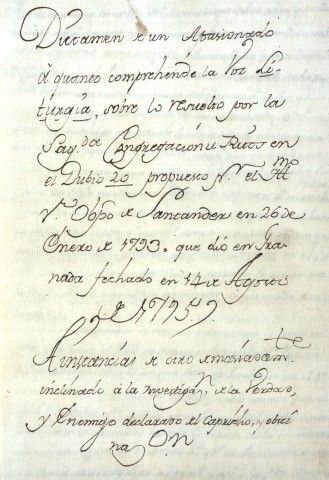 Dictamen de un Apasionado
á quanto comprehende la Voz Li-
turgia, sobre lo resuelto por la
Sag.da Congregación de Ritos en
el Dubio 20 propuesto p.r el Ill.mo
S.r Obpo de Santander en 26 de
Enero de 1793. que dió en Gra-
nada fechado en 14 de Agosto
de 1795.
A instancias de otro demasiadam.te
inclinado á la investigan. de la Verdad,
y Enemigo declarado del Capricho, y obsti
naon